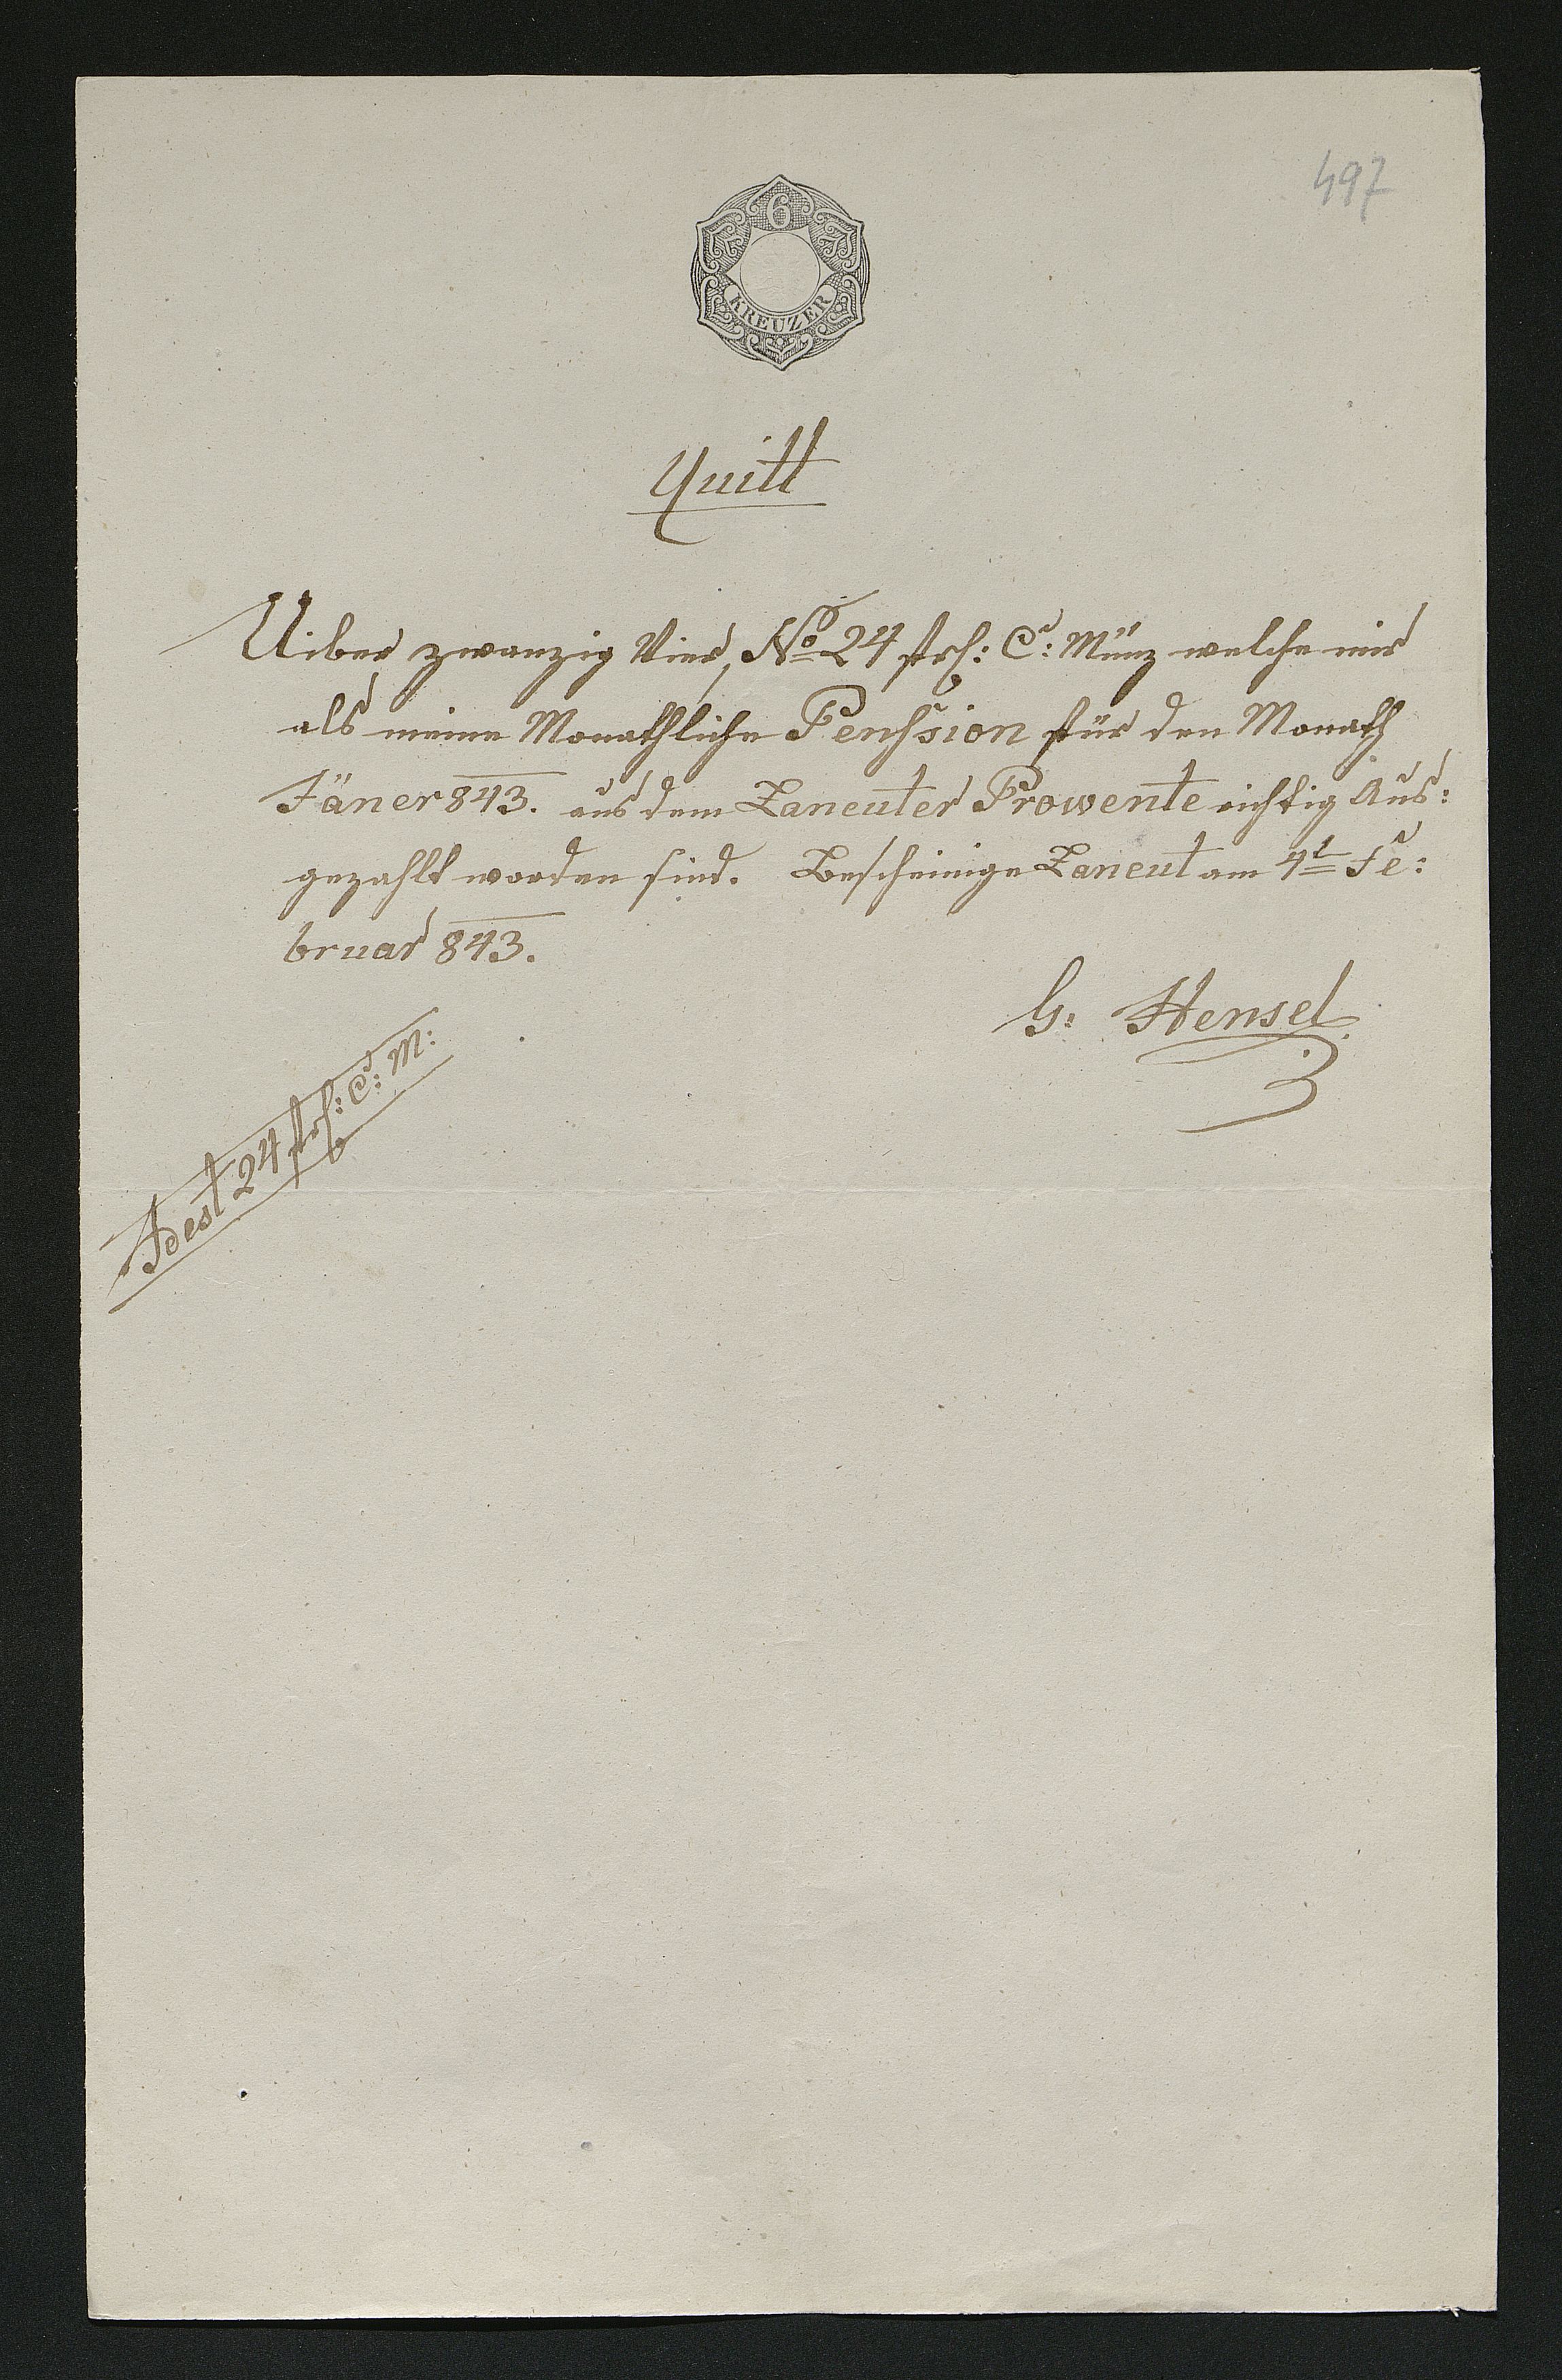 497
6
KREUZER
Quitt
Uiber zwanzig Vier, No 24 frh: C: Münz welche mir
als meine Monathliche Penſsion für den Monath
Jäner 843. aus dem Laneuter Prowente richtig Aus:
gezahlt worden sind. Bescheinige Laneut am 4t Fe:
bruar 843.
G: Hensel
Idest 24 frh: C: M: